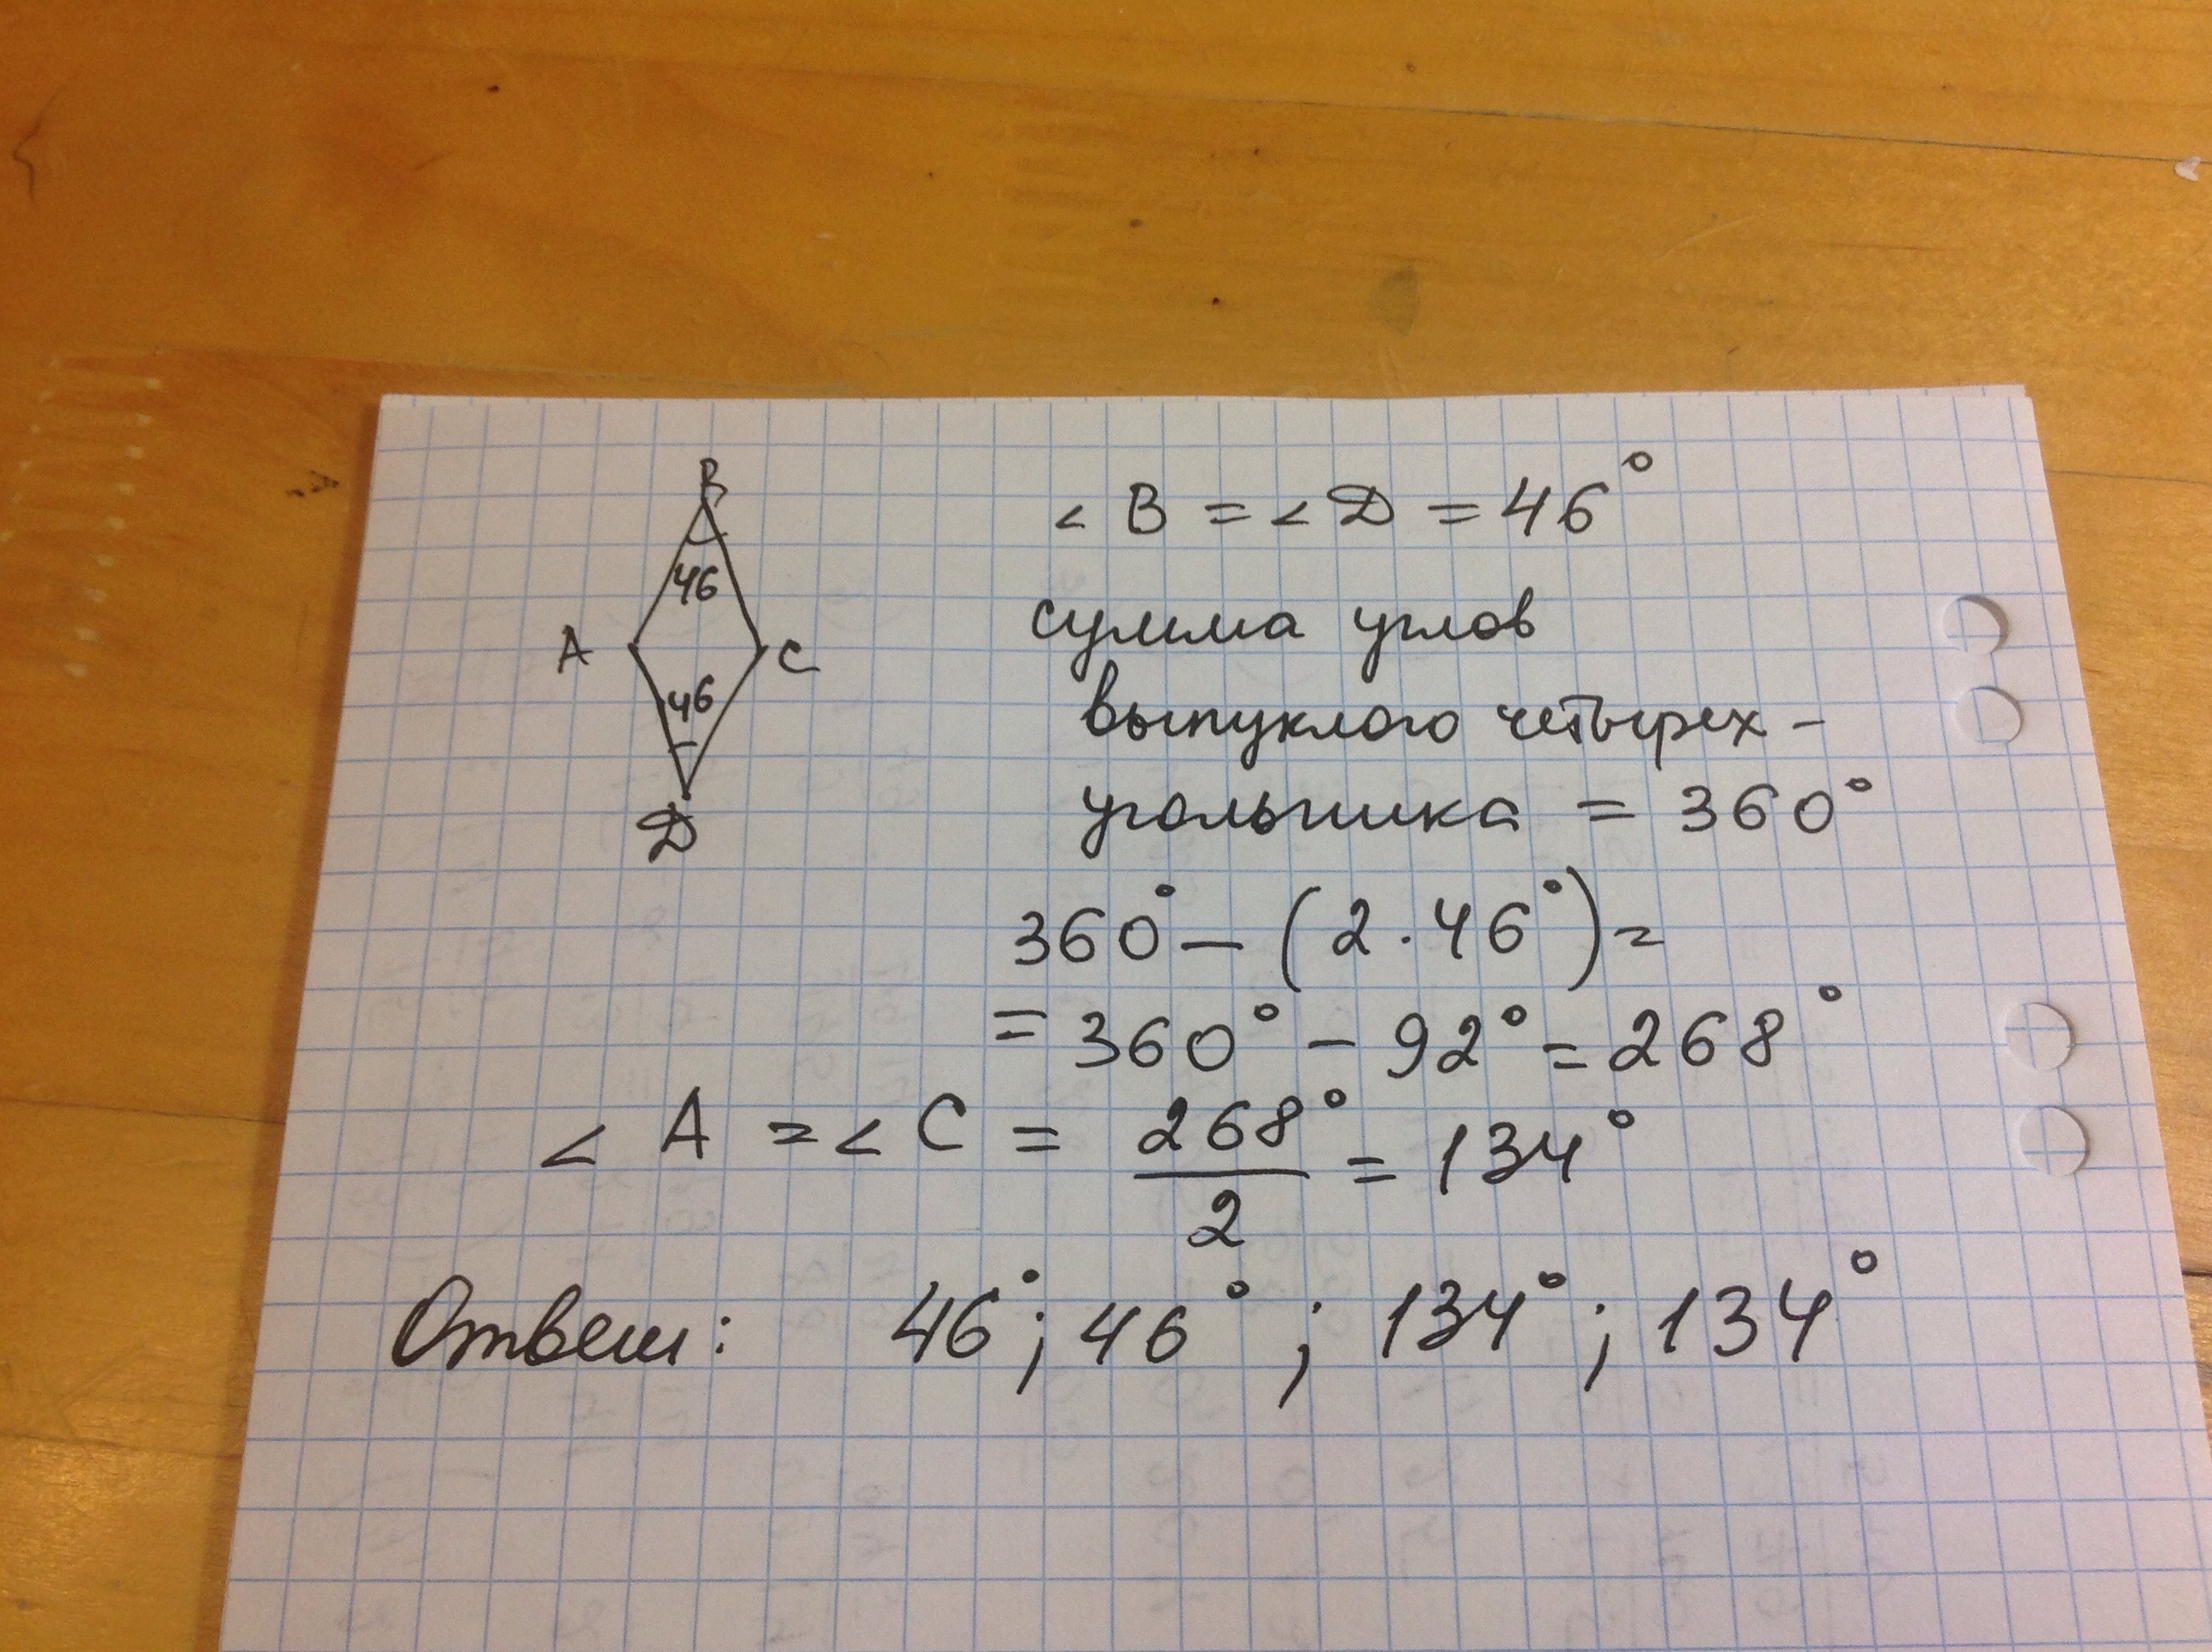 B
46
A
C
46
D
< B = < D = 46°
сумма углов
выпуклого четырех-
угольника = 360°
360° - (2 · 46°) =
= 360° - 92° = 268°
< A = < C = 268°/2 = 134°
Ответ: 46°; 46°; 134°; 134°